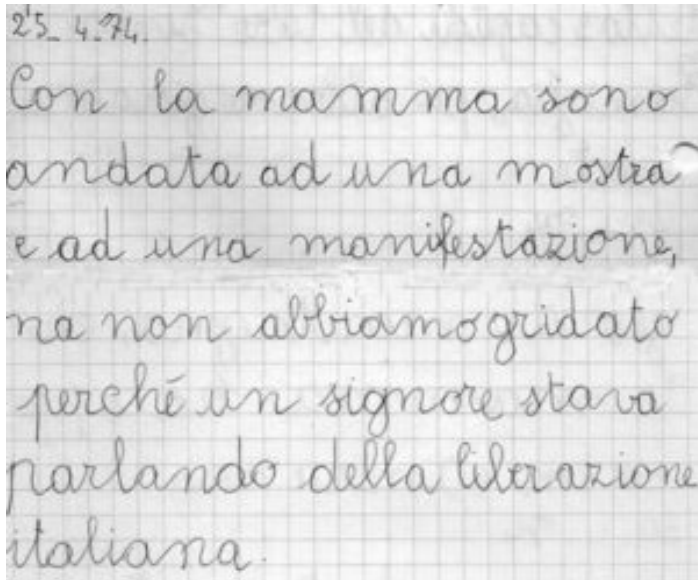 25-4-74.
Con la mamma sono
andata ad una mostra
e ad una manifestazione,
ma non abbiamo gridato
perché un signore stava
parlando della liberazione
italiana.